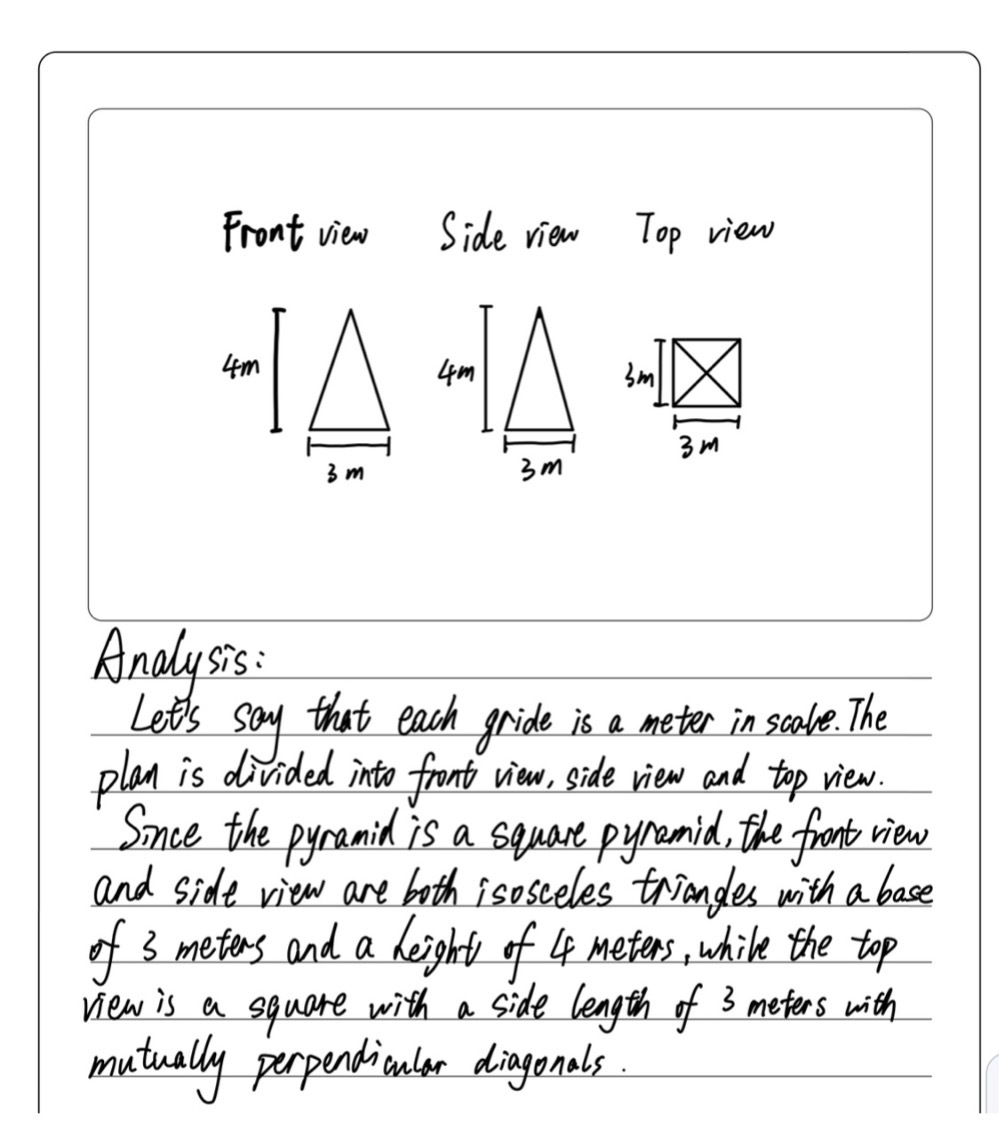 Front view Side view Top view
4m 4m 3m
3m 3m 3m
Analysis:
Let's say that each gride is a meter in scale. The
plan is divided into front view, side view and top view.
Since the pyramid is a square pyramid, the front view
and side view are both isosceles triangles with a base
of 3 meters and a height of 4 meters, while the top
view is a square with a side length of 3 meters with
mutually perpendicular diagonals.